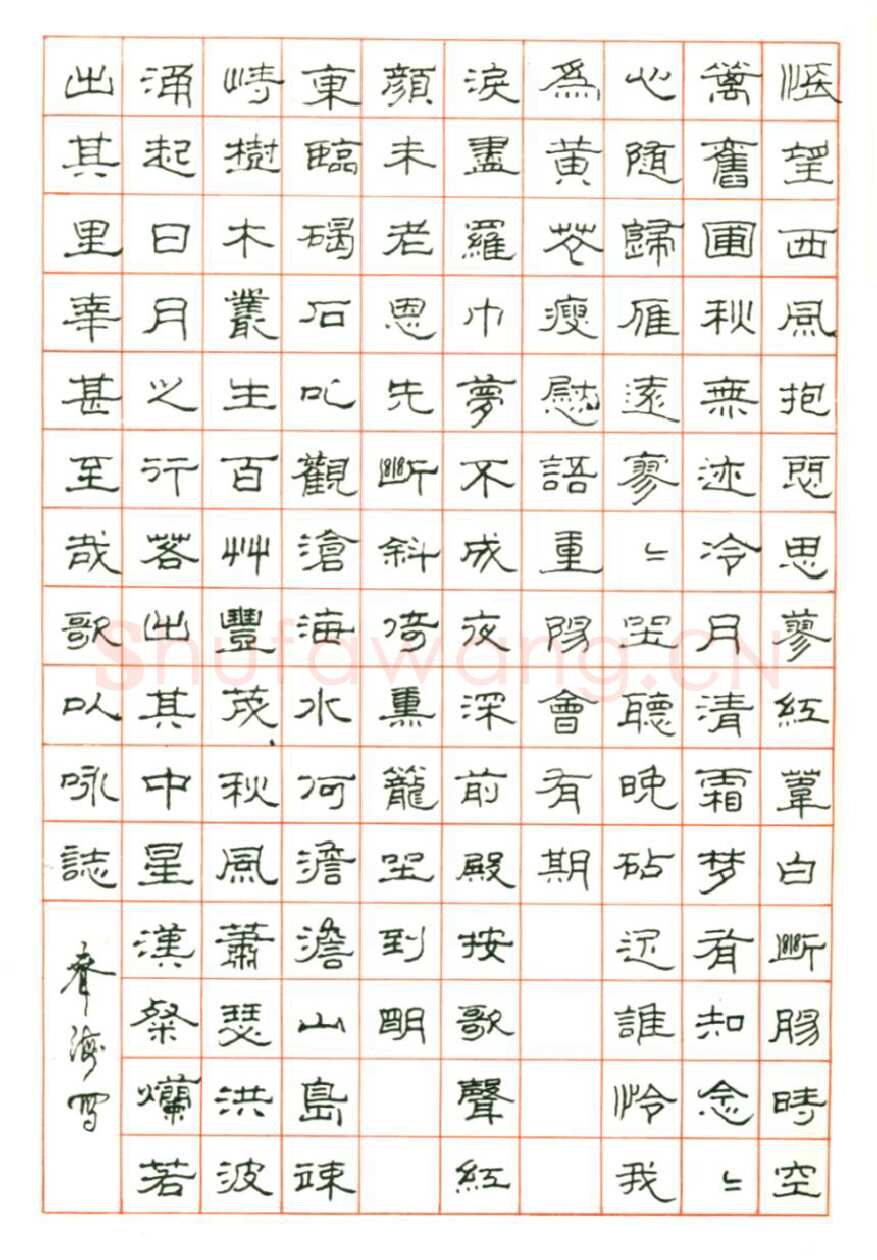 悵望西風抱悶思蓼紅葦白斷腸時空
籬舊圃秋無迹冷月清霜梦有知念〻
心随歸雁遠寥〻坐聽晚砧迟誰怜我
為黄花瘦慰語重陽會有期
淚盡羅巾夢不成夜深前殿按歌聲紅
顔未老恩先斷斜倚熏籠坐到明
東臨碣石以觀滄海水何澹澹山島竦
峙樹木叢生百艸豐茂秋風蕭瑟洪波
涌起日月之行若出其中星漢粲爛若
出其里幸甚至哉歌以咏誌
海写
Shufawang.CN